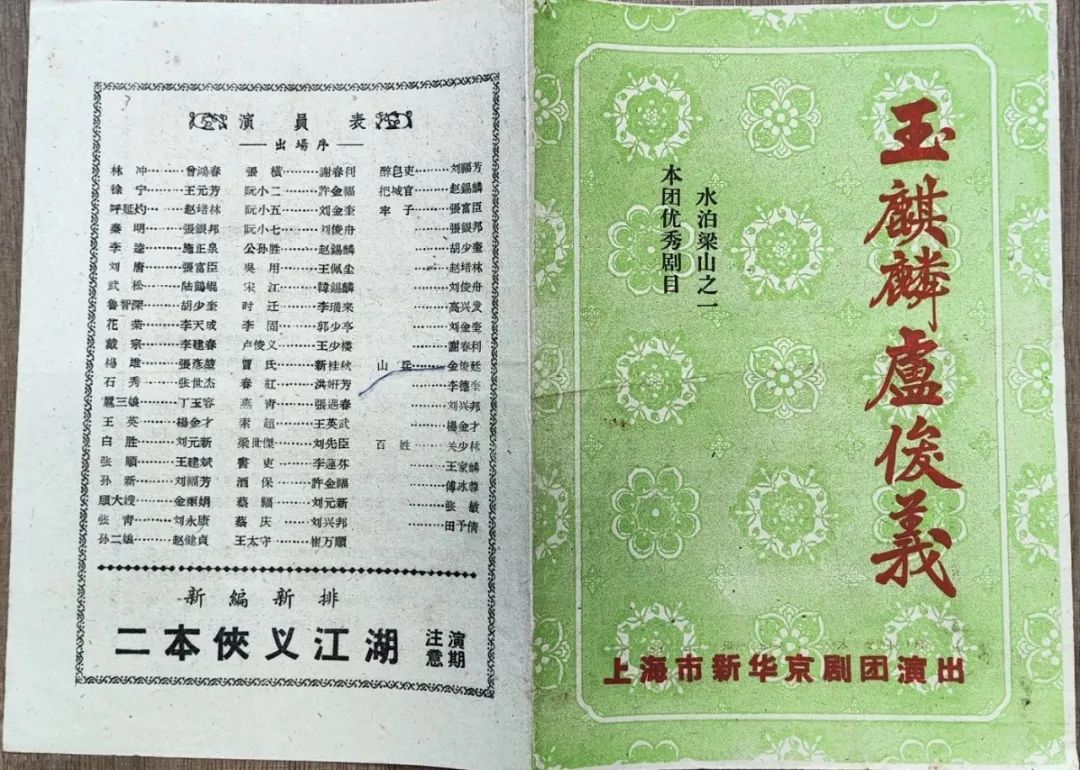 演員表
出場序
林冲………曾鴻春
徐宁………王元芳
呼延灼……赵培林
秦明………張銀邦
李逵………施正泉
刘唐………張富臣
武松………陆鶴崐
鲁智深……胡少奎
花荣………李天成
戴宗………李建春
楊雄………張彥堃
石秀………张世杰
扈三娘……丁玉容
王英………楊金才
白胜………刘元新
张順………王建斌
孙新………刘福芳
顾大嫂……金丽娟
张青………刘永康
孙二娘……赵健貞
張橫………謝春利
阮小二……許金福
阮小五……刘金奎
阮小七……刘俊舟
公孙胜……赵錫麟
吳用………王佩尘
宋江………韓錫麟
时迁………李瑞来
李固………郭少亭
卢俊义……王少楼
賈氏………新桂秋
春紅………洪妍芳
燕青………張遇春
索超………王英武
梁世傑……刘先臣
書吏………李蓮芬
酒保………許金福
蔡福………刘元新
蔡庆………刘兴邦
王太守……崔万順
醉皂吏……刘福芳
把城官……赵錫麟
牢子………張富臣
………張銀邦
………胡少奎
………赵培林
………刘俊舟
………高兴发
………刘金奎
………謝春利
山兵………金俊廷
………李德奎
………刘兴邦
………楊金才
百姓………关少林
………王家麟
………傅冰蓉
………张敏
………田予倩
新編新排
二本俠义江湖
注意演期
玉麒麟盧俊義
水泊梁山之一
本团优秀剧目
上海市新华京剧团演出